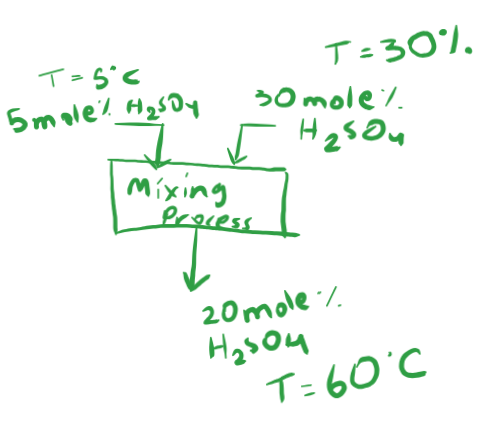 T = 30%.
T = 5°C
5 mole% H2SO4
30 mole%
H2SO4
Mixing
Process
20 mole %
H2SO4
T = 60°C